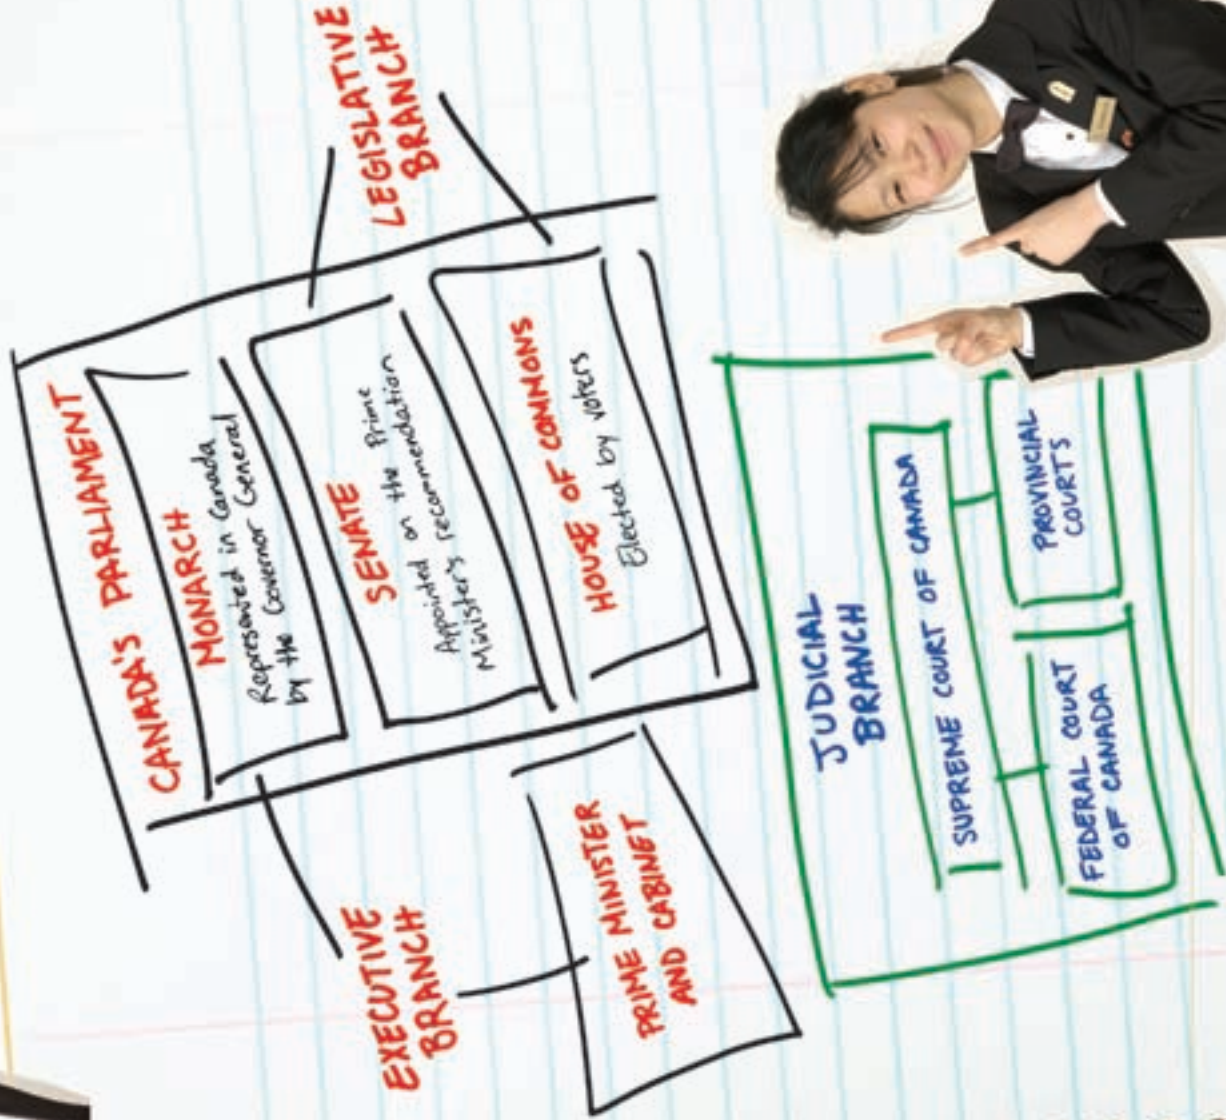 CANADA'S PARLIAMENT
MONARCH
Represented in Canada
by the Governor General
SENATE
Appointed on the Prime
Minister's recommendation
HOUSE OF COMMONS
Elected by voters
LEGISLATIVE
BRANCH
EXECUTIVE
BRANCH
PRIME MINISTER
AND CABINET
JUDICIAL
BRANCH
SUPREME COURT OF CANADA
FEDERAL COURT
OF CANADA
PROVINCIAL
COURTS